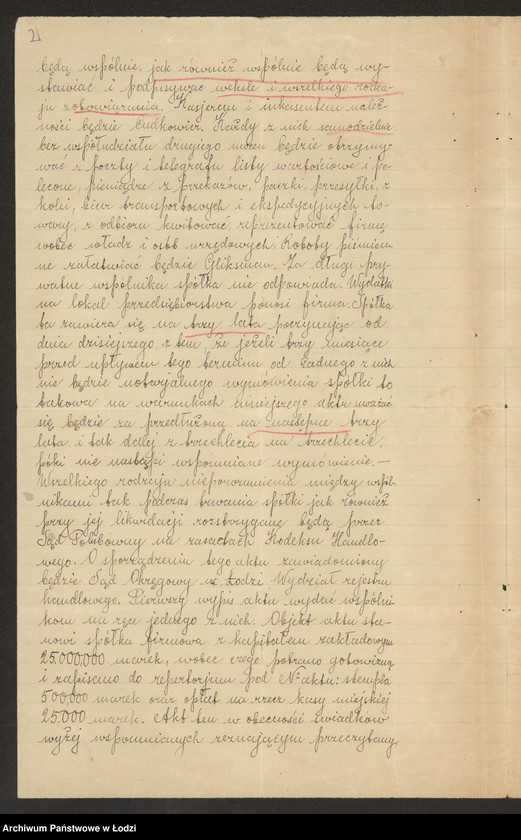 2
będą wspólnie, jak również wspólnie będą wy-
stawiać i podpisywać weksle i wszelkiego rodza-
ju zobowiązania. Kasjerem i inkasentem należ-
ności będzie Cudkowicz. Każdy z nich samodzielnie
bez współudziału drugiego mocen będzie otrzymy-
wać z poczty i telegrafu listy wartościowe i po-
lecone, pieniądze z przekazów, paczki, przesyłki, z
kolei, biur transportowych i ekspedycyjnych to-
wary, z odbioru kwitować, reprezentować firmę
wobec władz i osób urzędowych. Roboty piśmien-
ne załatwiać będzie Gliksman. Za długi pry-
watne wspólnika spółka nie odpowiada. Wydatki
na lokal przedsiębiorstwa ponosi firma. Spółka
ta zawiera się na trzy lata poczynając od
dnia dzisiejszego, z tem, że jeżeli trzy miesiące
przed upływem tego terminu od żadnego z nich
nie będzie notarjalnego wymówienia spółki to
takowa na warunkach niniejszego aktu uważać
się będzie za przedłużoną na następne trzy
lata i tak dalej z trzechlecia na trzechlecie,
póki nie nastąpi wspomniane wymówienie.-
Wszelkiego rodzaju nieporozumienia między wspól-
nikami tak podczas trwania spółki jak również
przy jej likwidacji rozstrzygane będą przez
Sąd Polubowny na zasadach Kodeksu Handlo-
wego. O sporządzeniu tego aktu zawiadomiony
będzie Sąd Okręgowy w Łodzi Wydział rejestru
handlowego. Pierwszy wypis aktu wydać wspólni-
kom na ręce jednego z nich. Objekt aktu sta-
nowi spółka firmowa z kapitałem zakładowym
25.000,000 marek, wobec czego pobrano gotowizną
i zapisano do repertorjum pod № aktu: stempla
500,000 marek oraz opłat na rzecz kasy miejskiej
25,000 marek. Akt ten w obecności świadków
wyżej wspomnianych zeznającym przeczytany,
Archiwum Państwowe w Łodzi